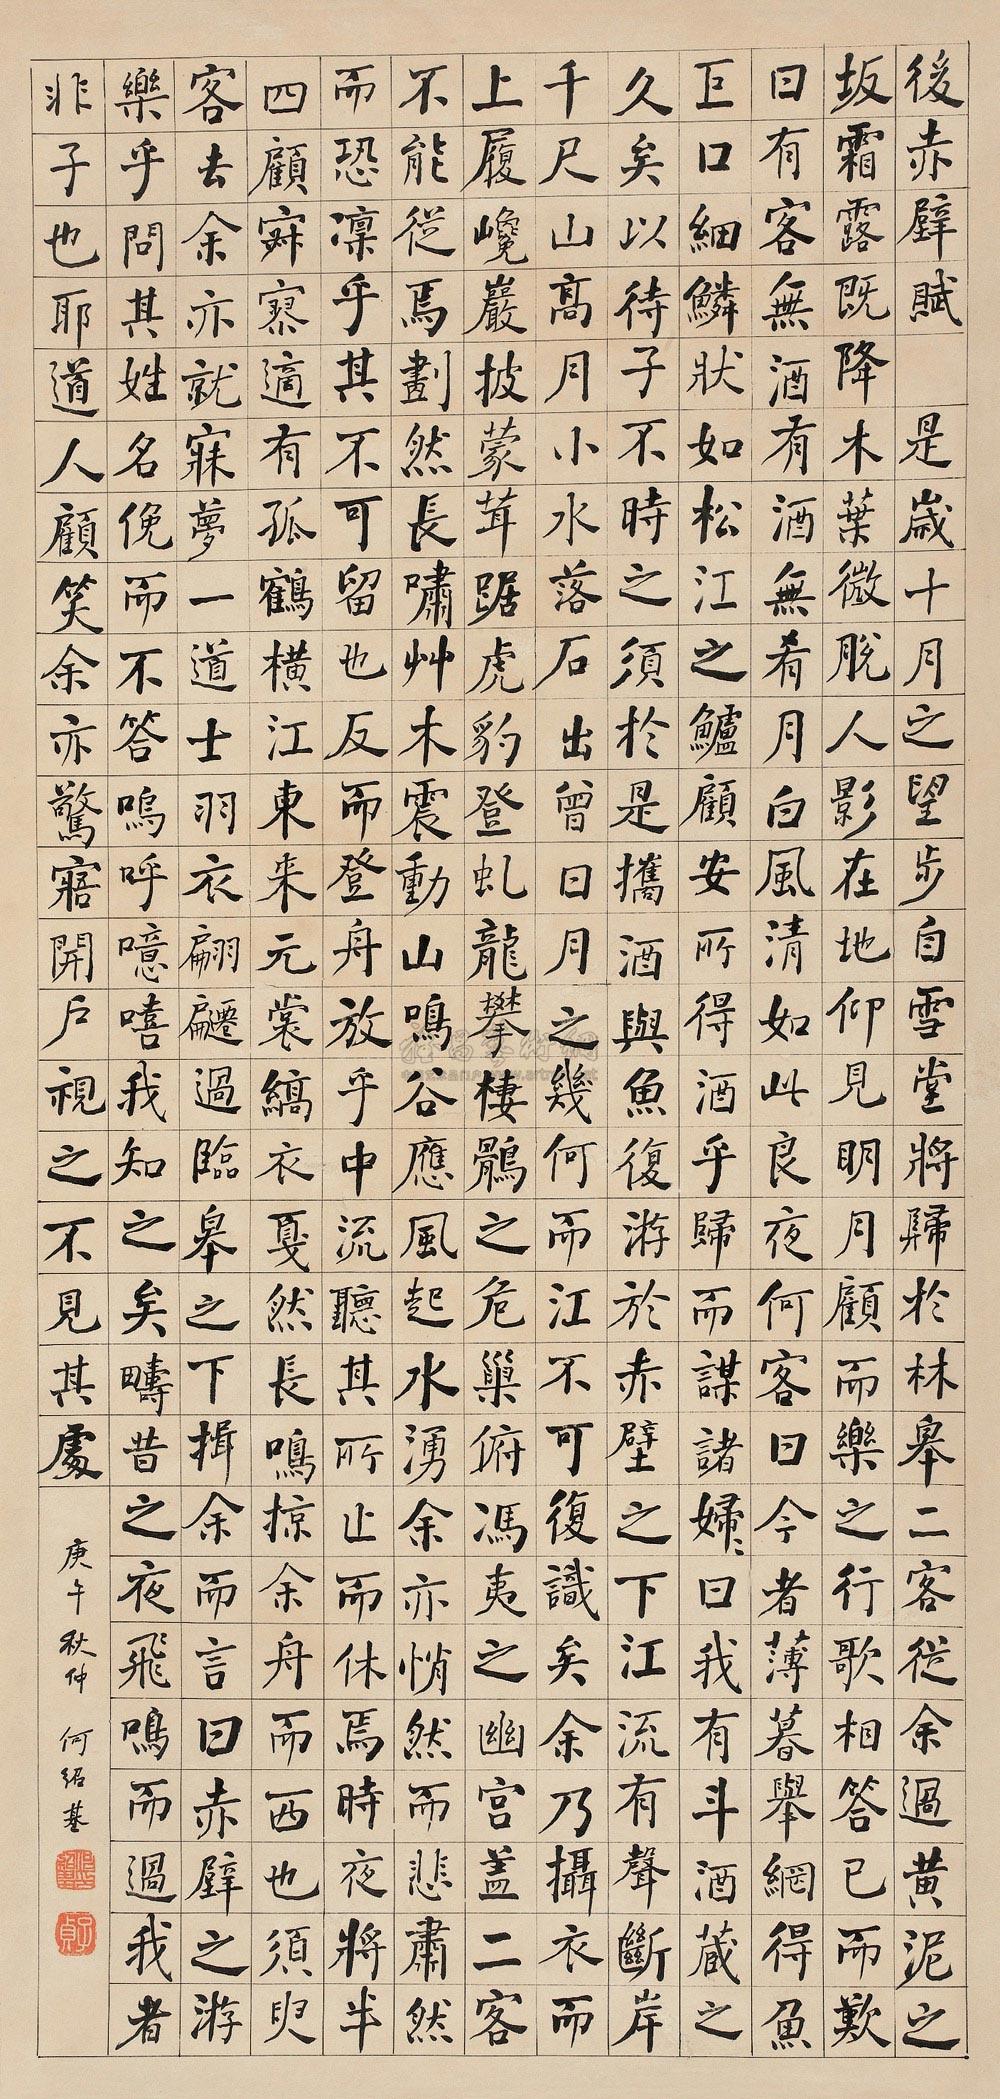 後赤壁賦 是歲十月之望步自雪堂將歸於林皋二客從余過黃泥之
坂霜露既降木葉微脫人影在地仰見明月顧而樂之行歌相答已而歎
曰有客無酒有酒無肴月白風清如此良夜何客曰今者薄暮舉網得魚
巨口細鱗狀如松江之鱸顧安所得酒乎歸而謀諸婦〻曰我有斗酒藏之
久矣以待子不時之須於是攜酒與魚復游於赤壁之下江流有聲斷岸
千尺山高月小水落石出曾日月之幾何而江不可復識矣余乃攝衣而
上履巉巖披蒙茸踞虎豹登虬龍攀棲鶻之危巢俯馮夷之幽宮盖二客
不能從焉劃然長嘯艸木震動山鳴谷應風起水湧余亦悄然而悲肅然
而恐凜乎其不可留也反而登舟放乎中流聽其所止而休焉時夜將半
四顧寂寥適有孤鶴橫江東來元裳縞衣戛然長鳴掠余舟而西也須臾
客去余亦就寐夢一道士羽衣翩躚過臨皋之下揖余而言曰赤壁之游
樂乎問其姓名俛而不答嗚呼噫嘻我知之矣疇昔之夜飛鳴而過我者
非子也耶道人顧笑余亦驚寤開戶視之不見其處
庚午秋仲 何紹基
子貞